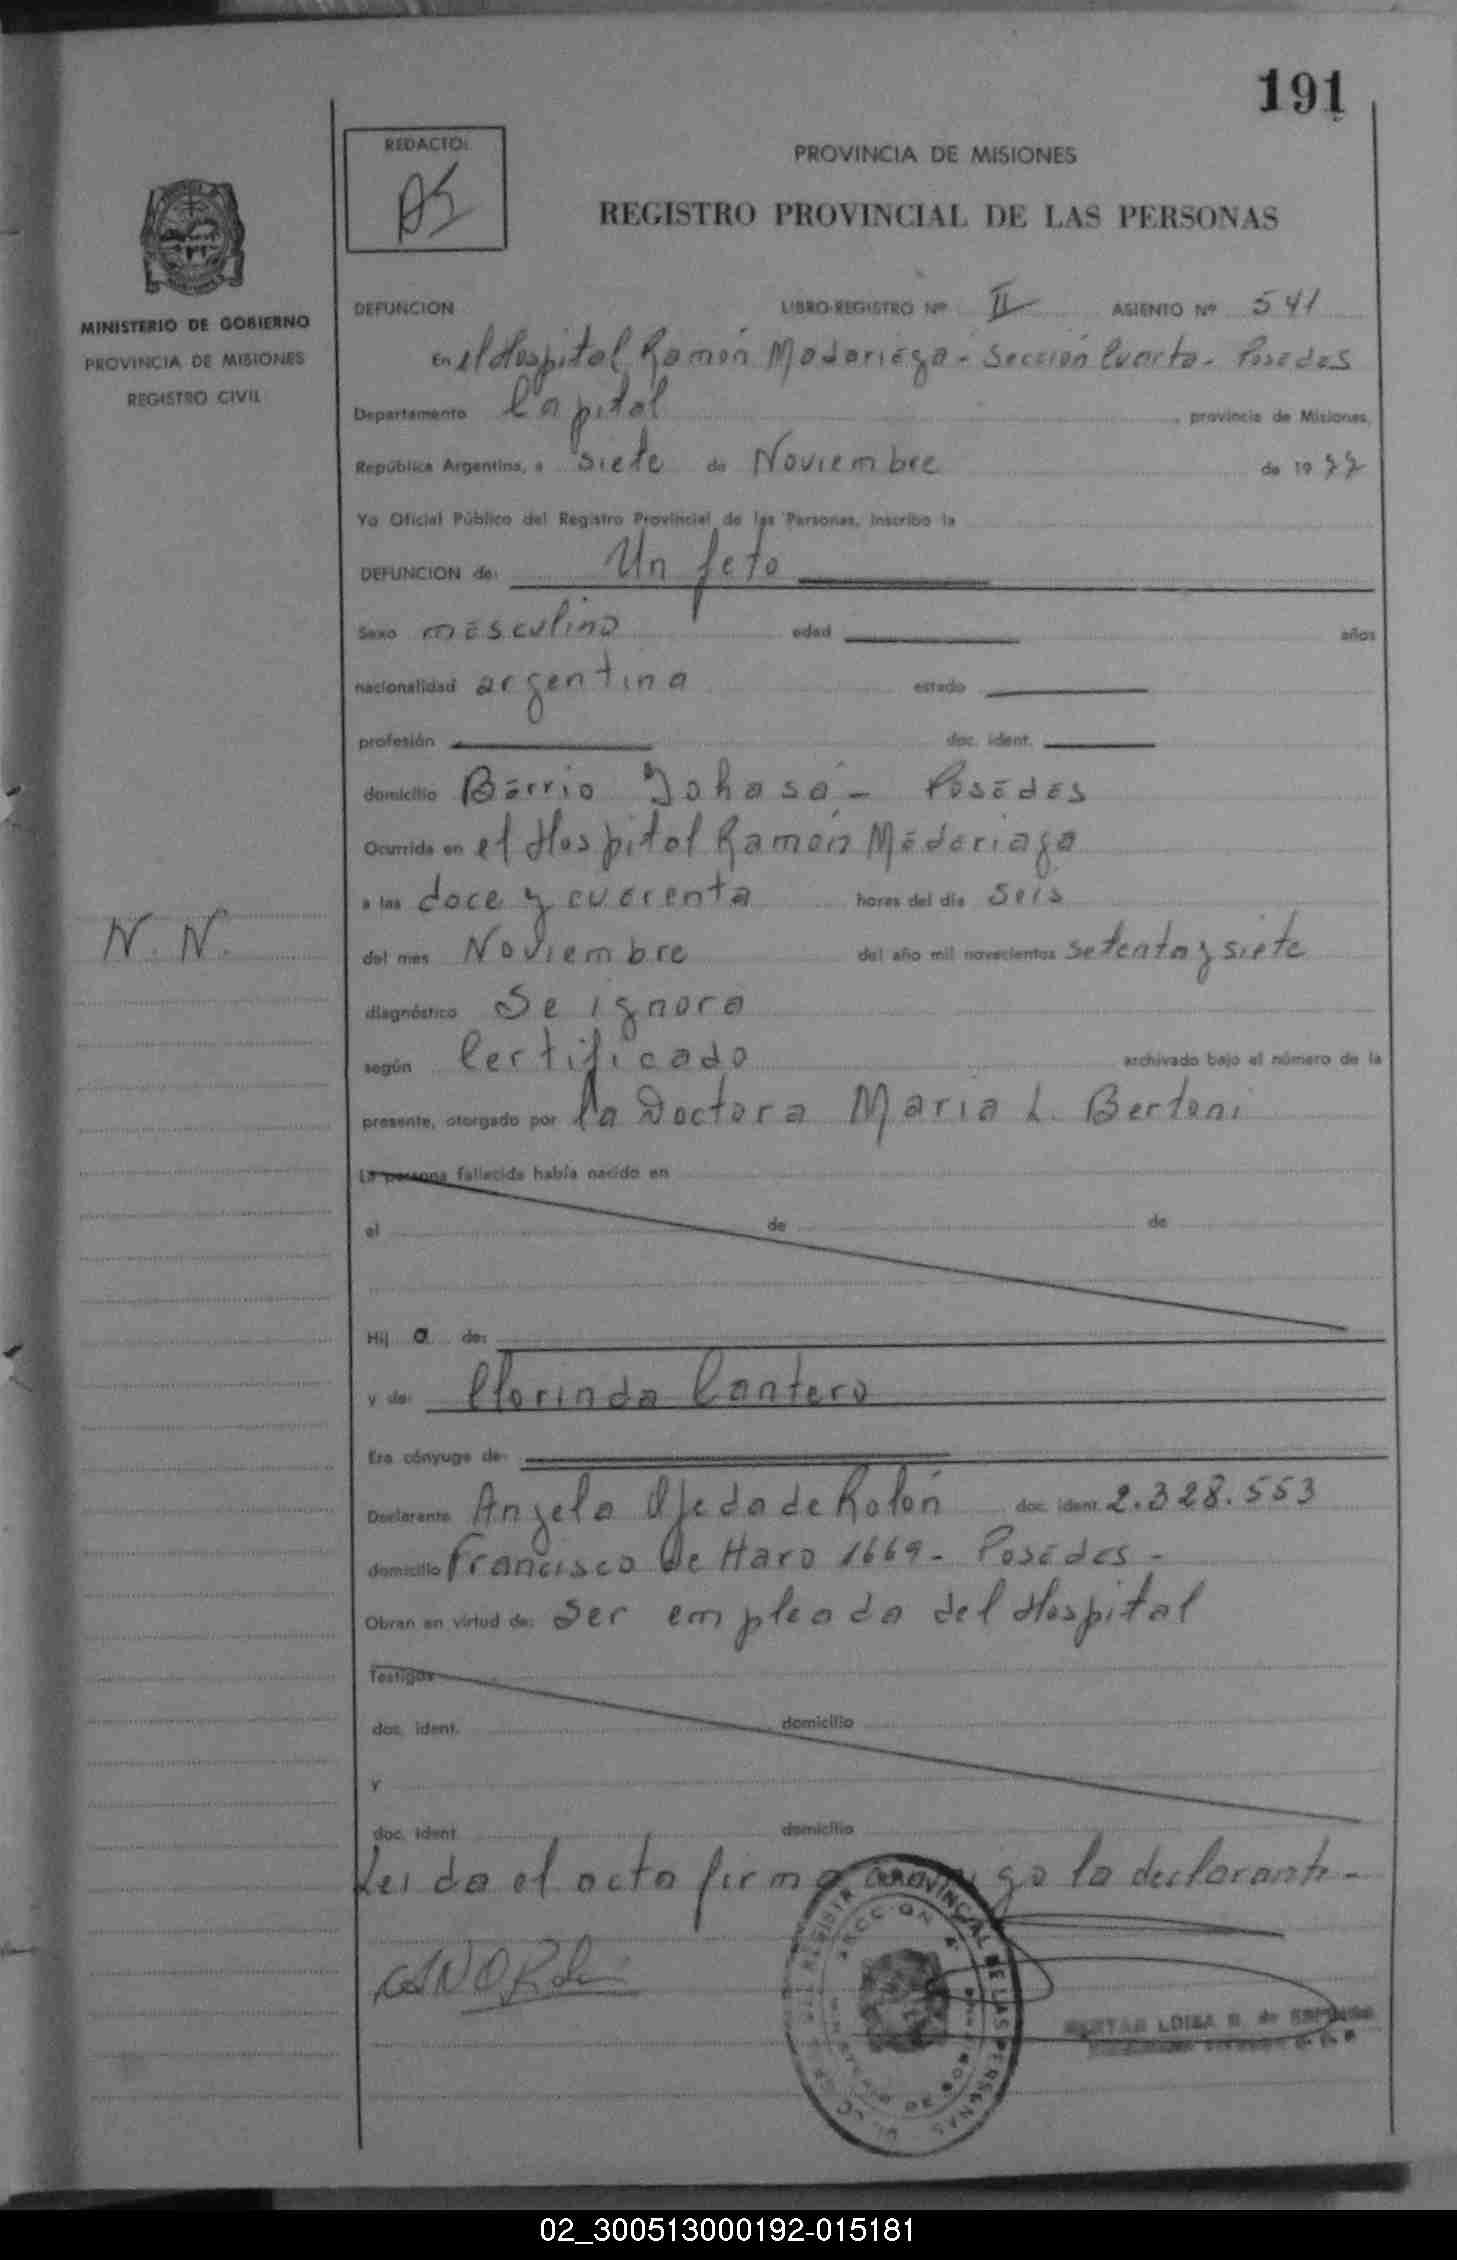 191
REDACTO:
PROVINCIA DE MISIONES
REGISTRO PROVINCIAL DE LAS PERSONAS
MINISTERIO DE GOBIERNO
PROVINCIA DE MISIONES
REGISTRO CIVIL
DEFUNCION LIBRO-REGISTRO Nº II ASIENTO Nº 541
En el Hospital Ramón Madariaga - Sección Cuarta - Posadas
Departamento Capital, provincia de Misiones,
República Argentina, a siete de Noviembre de 1977
Yo Oficial Público del Registro Provincial de las Personas, inscribo la
DEFUNCION de: Un feto
Sexo masculino edad años
nacionalidad argentina estado
profesión doc. ident.
domicilio Barrio Posadas
Ocurrida en el Hospital Ramón Madariaga
a las doce y cuarenta horas del día seis
N. N.
del mes Noviembre del año mil novecientos setenta y siete
diagnóstico Se ignora
según Certificado archivado bajo el número de la
presente, otorgado por la Doctora Maria L. Bertoni
La persona fallecida había nacido en
el de de
Hij o de:
y de: Clorinda Cantero
Era cónyuge de:
Declarante Angela Ojeda de Rolón doc. ident. 2.328.553
domicilio Francisco de Haro 1669 - Posadas -
Obran en virtud de: Ser empleada del Hospital
Testigos
doc. ident. domicilio
y
doc. ident. domicilio
Leida el acta firma conmigo la declarante -
REGISTRO PROVINCIAL DE LAS PERSONAS
SECCION 4ª
02_300513000192-015181